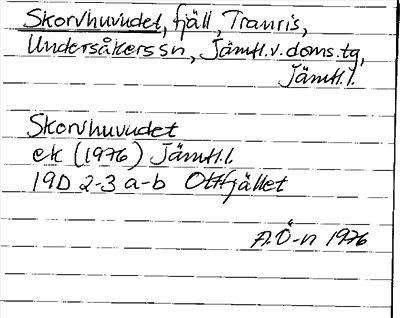 Skorvhuvudet, fjäll, Tranris,
Undersåkers sn, Jämtl. v. doms. tg,
Jämtl. l.
Skorvhuvudet
ek (1976) Jämtl. l.
19D 2-3 a-b Ottfjället
A.Ö-n 1976